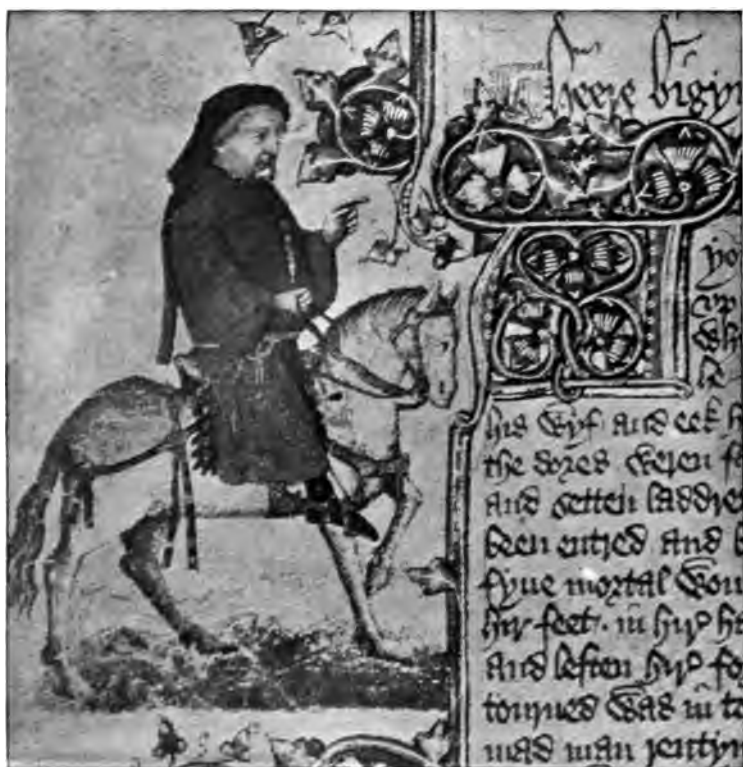 Heere bigyn
yo
vp
his wyf and eek h
the dores weren f
and setten laddre
been entred and b
fyue mortal wou
hir feet in hir h
and leften hir fo
tourned was in to
mad man rentyn